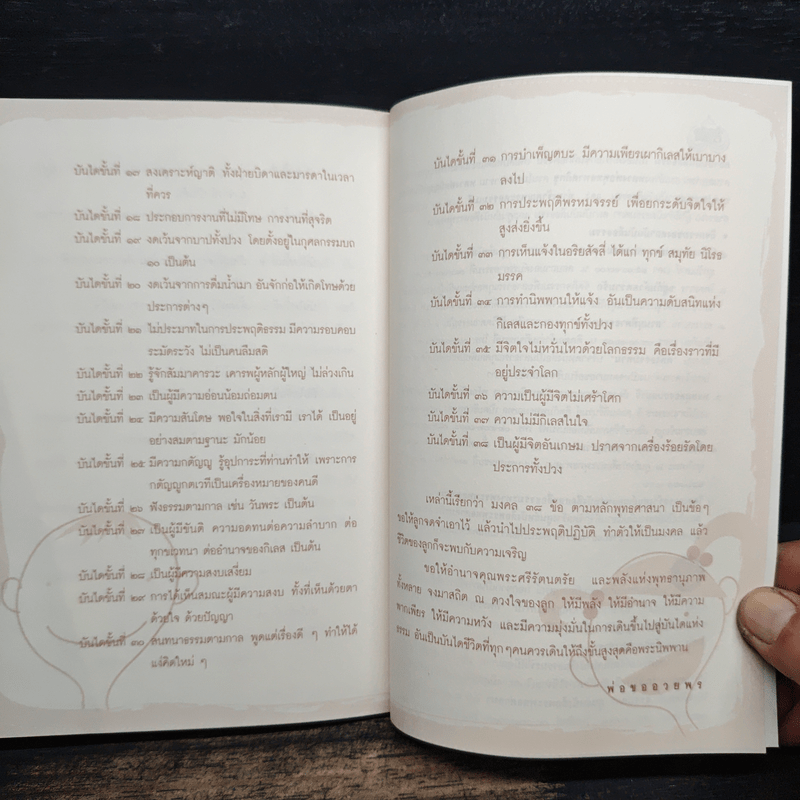 บันไดขั้นที่ ๑๗ สงเคราะห์ญาติ ทั้งฝ่ายบิดาและมารดาในเวลา
ที่ควร
บันไดขั้นที่ ๑๘ ประกอบการงานที่ไม่มีโทษ การงานที่สุจริต
บันไดขั้นที่ ๑๙ งดเว้นจากบาปทั้งปวง โดยตั้งอยู่ในกุศลกรรมบถ
๑๐ เป็นต้น
บันไดขั้นที่ ๒๐ งดเว้นจากการดื่มน้ำเมา อันจักก่อให้เกิดโทษด้วย
ประการต่างๆ
บันไดขั้นที่ ๒๑ ไม่ประมาทในการประพฤติธรรม มีความรอบคอบ
ระมัดระวัง ไม่เป็นคนลืมสติ
บันไดขั้นที่ ๒๒ รู้จักสัมมาคารวะ เคารพผู้หลักผู้ใหญ่ ไม่ล่วงเกิน
บันไดขั้นที่ ๒๓ เป็นผู้มีความอ่อนน้อมถ่อมตน
บันไดขั้นที่ ๒๔ มีความสันโดษ พอใจในสิ่งที่เรามี เราได้ เป็นอยู่
อย่างสมตามฐานะ มักน้อย
บันไดขั้นที่ ๒๕ มีความกตัญญู รู้อุปการะที่ท่านทำให้ เพราะการ
กตัญญูกตเวทีเป็นเครื่องหมายของคนดี
บันไดขั้นที่ ๒๖ ฟังธรรมตามกาล เช่น วันพระ เป็นต้น
บันไดขั้นที่ ๒๗ เป็นผู้มีขันติ ความอดทนต่อความลำบาก ต่อ
ทุกขเวทนา ต่ออำนาจของกิเลส เป็นต้น
บันไดขั้นที่ ๒๘ เป็นผู้มีความสงบเสงี่ยม
บันไดขั้นที่ ๒๙ การได้เห็นสมณะผู้มีความสงบ ทั้งที่เห็นด้วยตา
ด้วยใจ ด้วยปัญญา
บันไดขั้นที่ ๓๐ สนทนาธรรมตามกาล พูดแต่เรื่องดี ๆ ทำให้ได้
แง่คิดใหม่ ๆ
บันไดขั้นที่ ๓๑ การบำเพ็ญตบะ มีความเพียรเผากิเลสให้เบาบาง
ลงไป
บันไดขั้นที่ ๓๒ การประพฤติพรหมจรรย์ เพื่อยกระดับจิตใจให้
สูงส่งยิ่งขึ้น
บันไดขั้นที่ ๓๓ การเห็นแจ้งในอริยสัจสี่ ได้แก่ ทุกข์ สมุทัย นิโรธ
มรรค
บันไดขั้นที่ ๓๔ การทำนิพพานให้แจ้ง อันเป็นความดับสนิทแห่ง
กิเลสและกองทุกข์ทั้งปวง
บันไดขั้นที่ ๓๕ มีจิตใจไม่หวั่นไหวด้วยโลกธรรม คือเรื่องราวที่มี
อยู่ประจำโลก
บันไดขั้นที่ ๓๖ ความเป็นผู้มีจิตไม่เศร้าโศก
บันไดขั้นที่ ๓๗ ความไม่มีกิเลสในใจ
บันไดขั้นที่ ๓๘ เป็นผู้มีจิตอันเกษม ปราศจากเครื่องร้อยรัดโดย
ประการทั้งปวง
เหล่านี้เรียกว่า มงคล ๓๘ ข้อ ตามหลักพุทธศาสนา เป็นข้อๆ
ขอให้ลูกจดจำเอาไว้ แล้วนำไปประพฤติปฏิบัติ ทำตัวให้เป็นมงคล แล้ว
ชีวิตของลูกก็จะพบกับความเจริญ
ขอให้อำนาจคุณพระศรีรัตนตรัย และพลังแห่งพุทธานุภาพ
ทั้งหลาย จงมาสถิต ณ ดวงใจของลูก ให้มีพลัง ให้มีอำนาจ ให้มีความ
พากเพียร ให้มีความหวัง และมีความมุ่งมั่นในการเดินขึ้นไปสู่บันไดแห่ง
ธรรม อันเป็นบันไดชีวิตที่ทุกๆคนควรเดินให้ถึงขั้นสูงสุดคือพระนิพพาน
พ่อขออวยพร